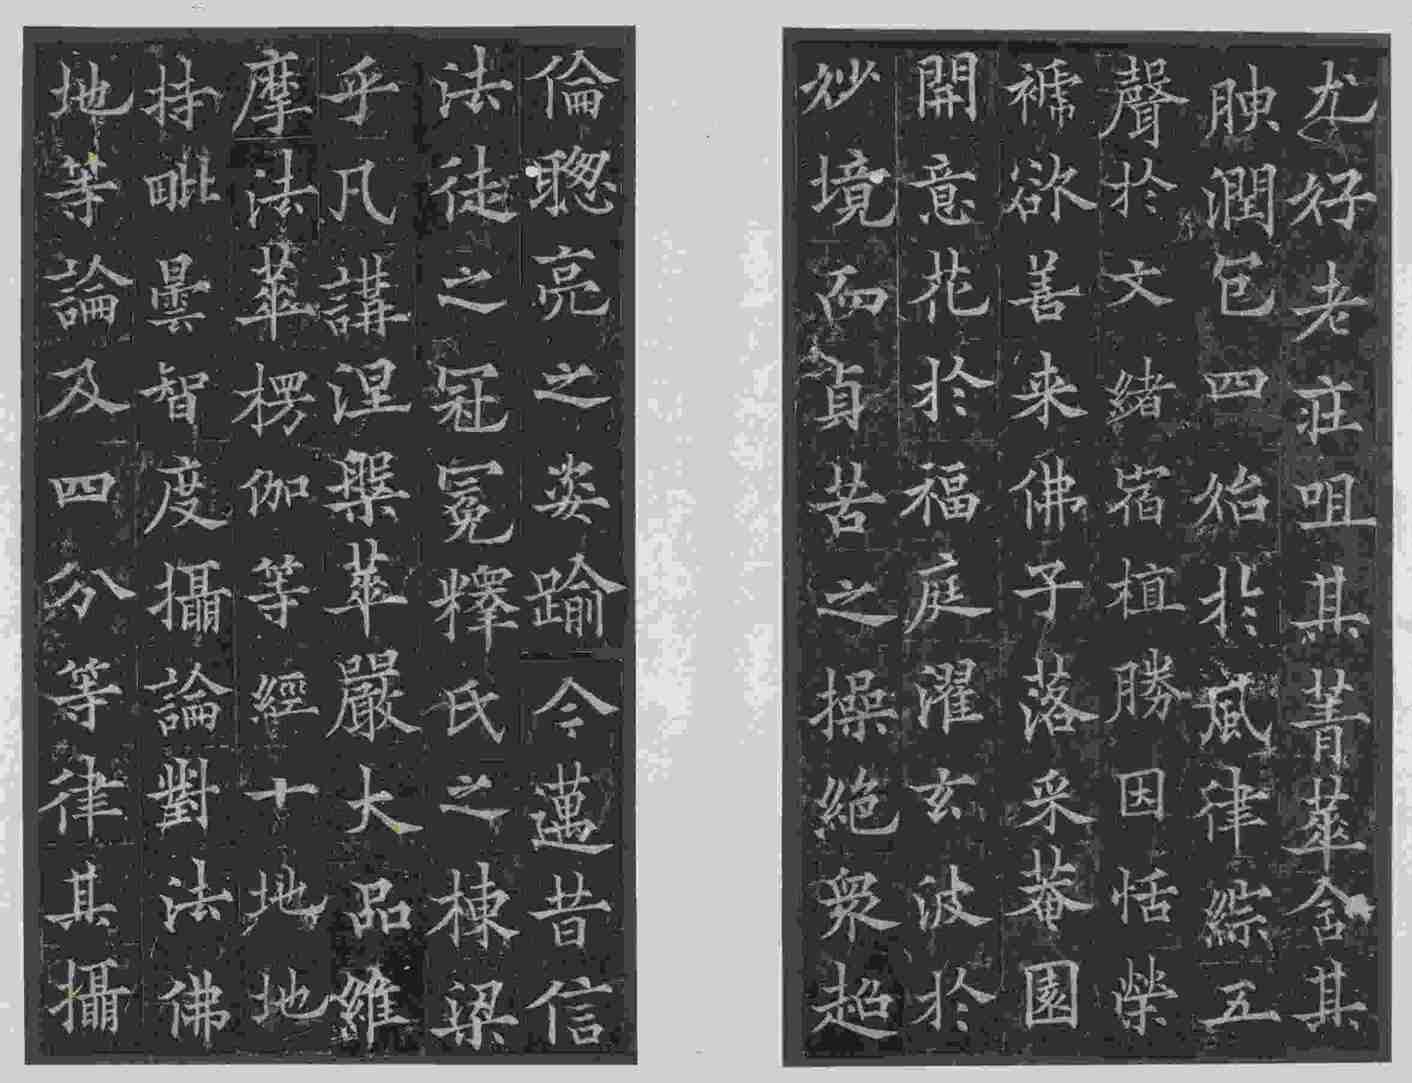 尤好老莊咀其菁華含其
腴潤包四始於風律綜五
聲於文緒宿植勝因恬榮
褥欲善来佛子落采菴園
開意花於福庭濯玄波於
妙境而貞苦之操絶衆超
倫聦亮之姿踰今邁昔信
法徒之冠冕釋氏之棟梁
乎凡講涅槃華嚴大品維
摩法華楞伽等經十地地
持毗曇智度攝論對法佛
地等論及四分等律其攝